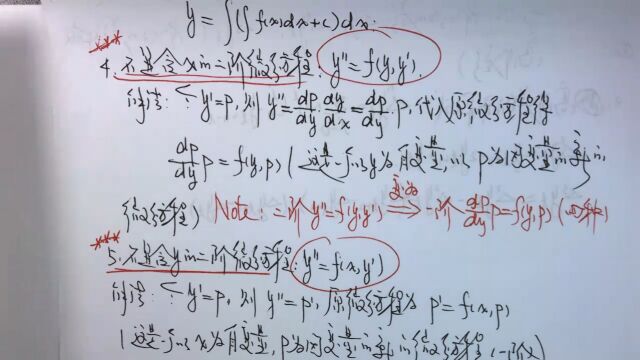 y = ∫(∫f(x)dx+C)dx.
*** 4. 不显含x的二阶微分方程: y''=f(y,y').
解法: 令 y'=p, 则 y''=dp/dy·dy/dx=dp/dy·p, 代入原微分方程得
dp/dy p = f(y,p) (这是一个以y为自变量, 以p为因变量的一阶的
微分方程) Note: 二阶 y''=f(y,y') ⟹ 一阶 dp/dy p=f(y,p)
*** 5. 不显含y的二阶微分方程: y''=f(x,y')
解法: 令 y'=p, 则 y''=p', 原微分方程为 p'=f(x,p)
(这是一个以x为自变量, p为因变量的一阶的微分方程